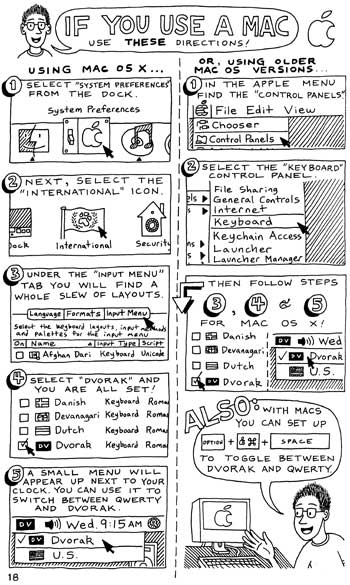 IF YOU USE A MAC
USE THESE DIRECTIONS!
USING MAC OS X...
1 SELECT "SYSTEM PREFERENCES"
FROM THE DOCK.
System Preferences
2 NEXT, SELECT THE
"INTERNATIONAL" ICON.
Dock International Security
3 UNDER THE "INPUT MENU"
TAB YOU WILL FIND A
WHOLE SLEW OF LAYOUTS.
Language Formats Input Menu
Select the keyboard layouts, input methods
and palettes for the input menu
On Name Input Type Script
Afghan Dari Keyboard Unicode
4 SELECT "DVORAK" AND
YOU ARE ALL SET!
Danish Keyboard Roma
Devanagari Keyboard Roma
Dutch Keyboard Roma
DV Dvorak Keyboard Roma
5 A SMALL MENU WILL
APPEAR UP NEXT TO YOUR
CLOCK. YOU CAN USE IT TO
SWITCH BETWEEN QWERTY
AND DVORAK.
DV Wed. 9:15 AM
✓ DV Dvorak
U.S.
18
OR, USING OLDER
MAC OS VERSIONS...
1 IN THE APPLE MENU
FIND THE "CONTROL PANELS"
File Edit View
Chooser
Control Panels
2 SELECT THE "KEYBOARD"
CONTROL PANEL.
File Sharing
General Controls
Internet
Keyboard
Keychain Access
Launcher
Launcher Manager
THEN FOLLOW STEPS
3, 4 & 5
FOR MAC OS X!
Danish
Devanagari
Dutch
DV Dvorak
DV Wed
✓ DV Dvorak
U.S.
ALSO: WITH MACS
YOU CAN SET UP
OPTION + ⌘ + SPACE
TO TOGGLE BETWEEN
DVORAK AND QWERTY.